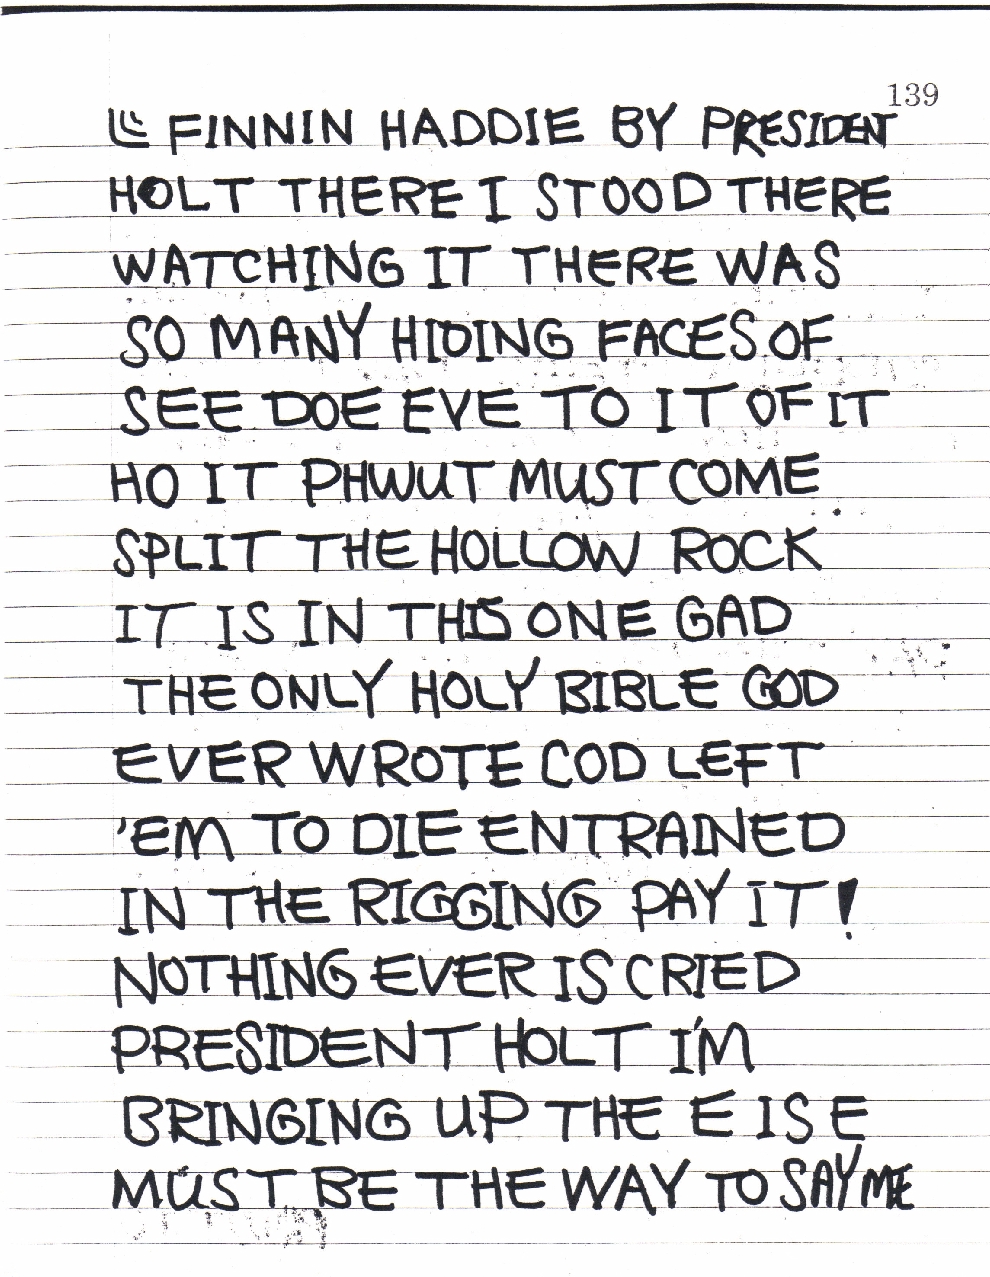 139
FINNIN HADDIE BY PRESIDENT
HOLT THERE I STOOD THERE
WATCHING IT THERE WAS
SO MANY HIDING FACES OF
SEE DOE EVE TO IT OF IT
HO IT PHWUT MUST COME
SPLIT THE HOLLOW ROCK
IT IS IN THIS ONE GAD
THE ONLY HOLY BIBLE GOD
EVER WROTE COD LEFT
'EM TO DIE ENTRAINED
IN THE RIGGING PAY IT!
NOTHING EVER IS CRIED
PRESIDENT HOLT I'M
BRINGING UP THE E ISE
MUST BE THE WAY TO SAY ME